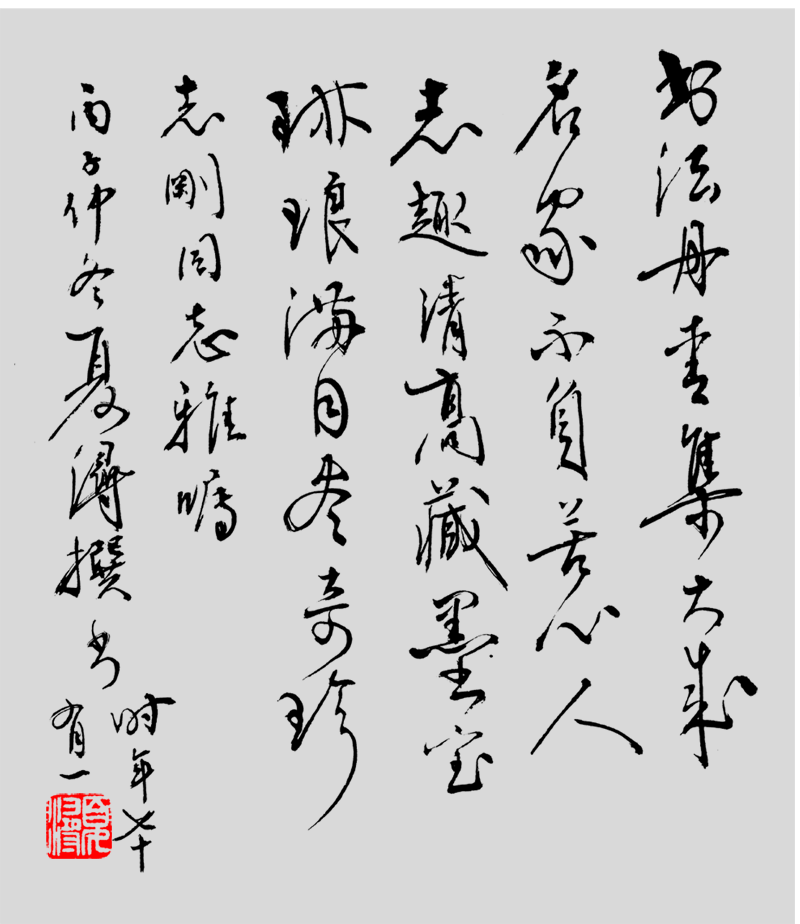 书法丹青集大成
名家不負苦心人
志趣清高藏墨宝
琳琅满目尽奇珍
志剛同志雅嘱
丙子仲冬夏潯撰书
时年七十
有一